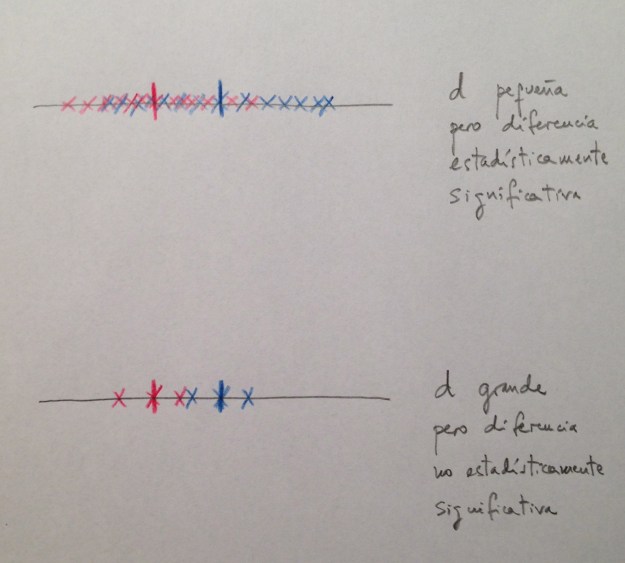 d pequeña
pero diferencia
estadísticamente
significativa
d grande
pero diferencia
no estadísticamente
significativa